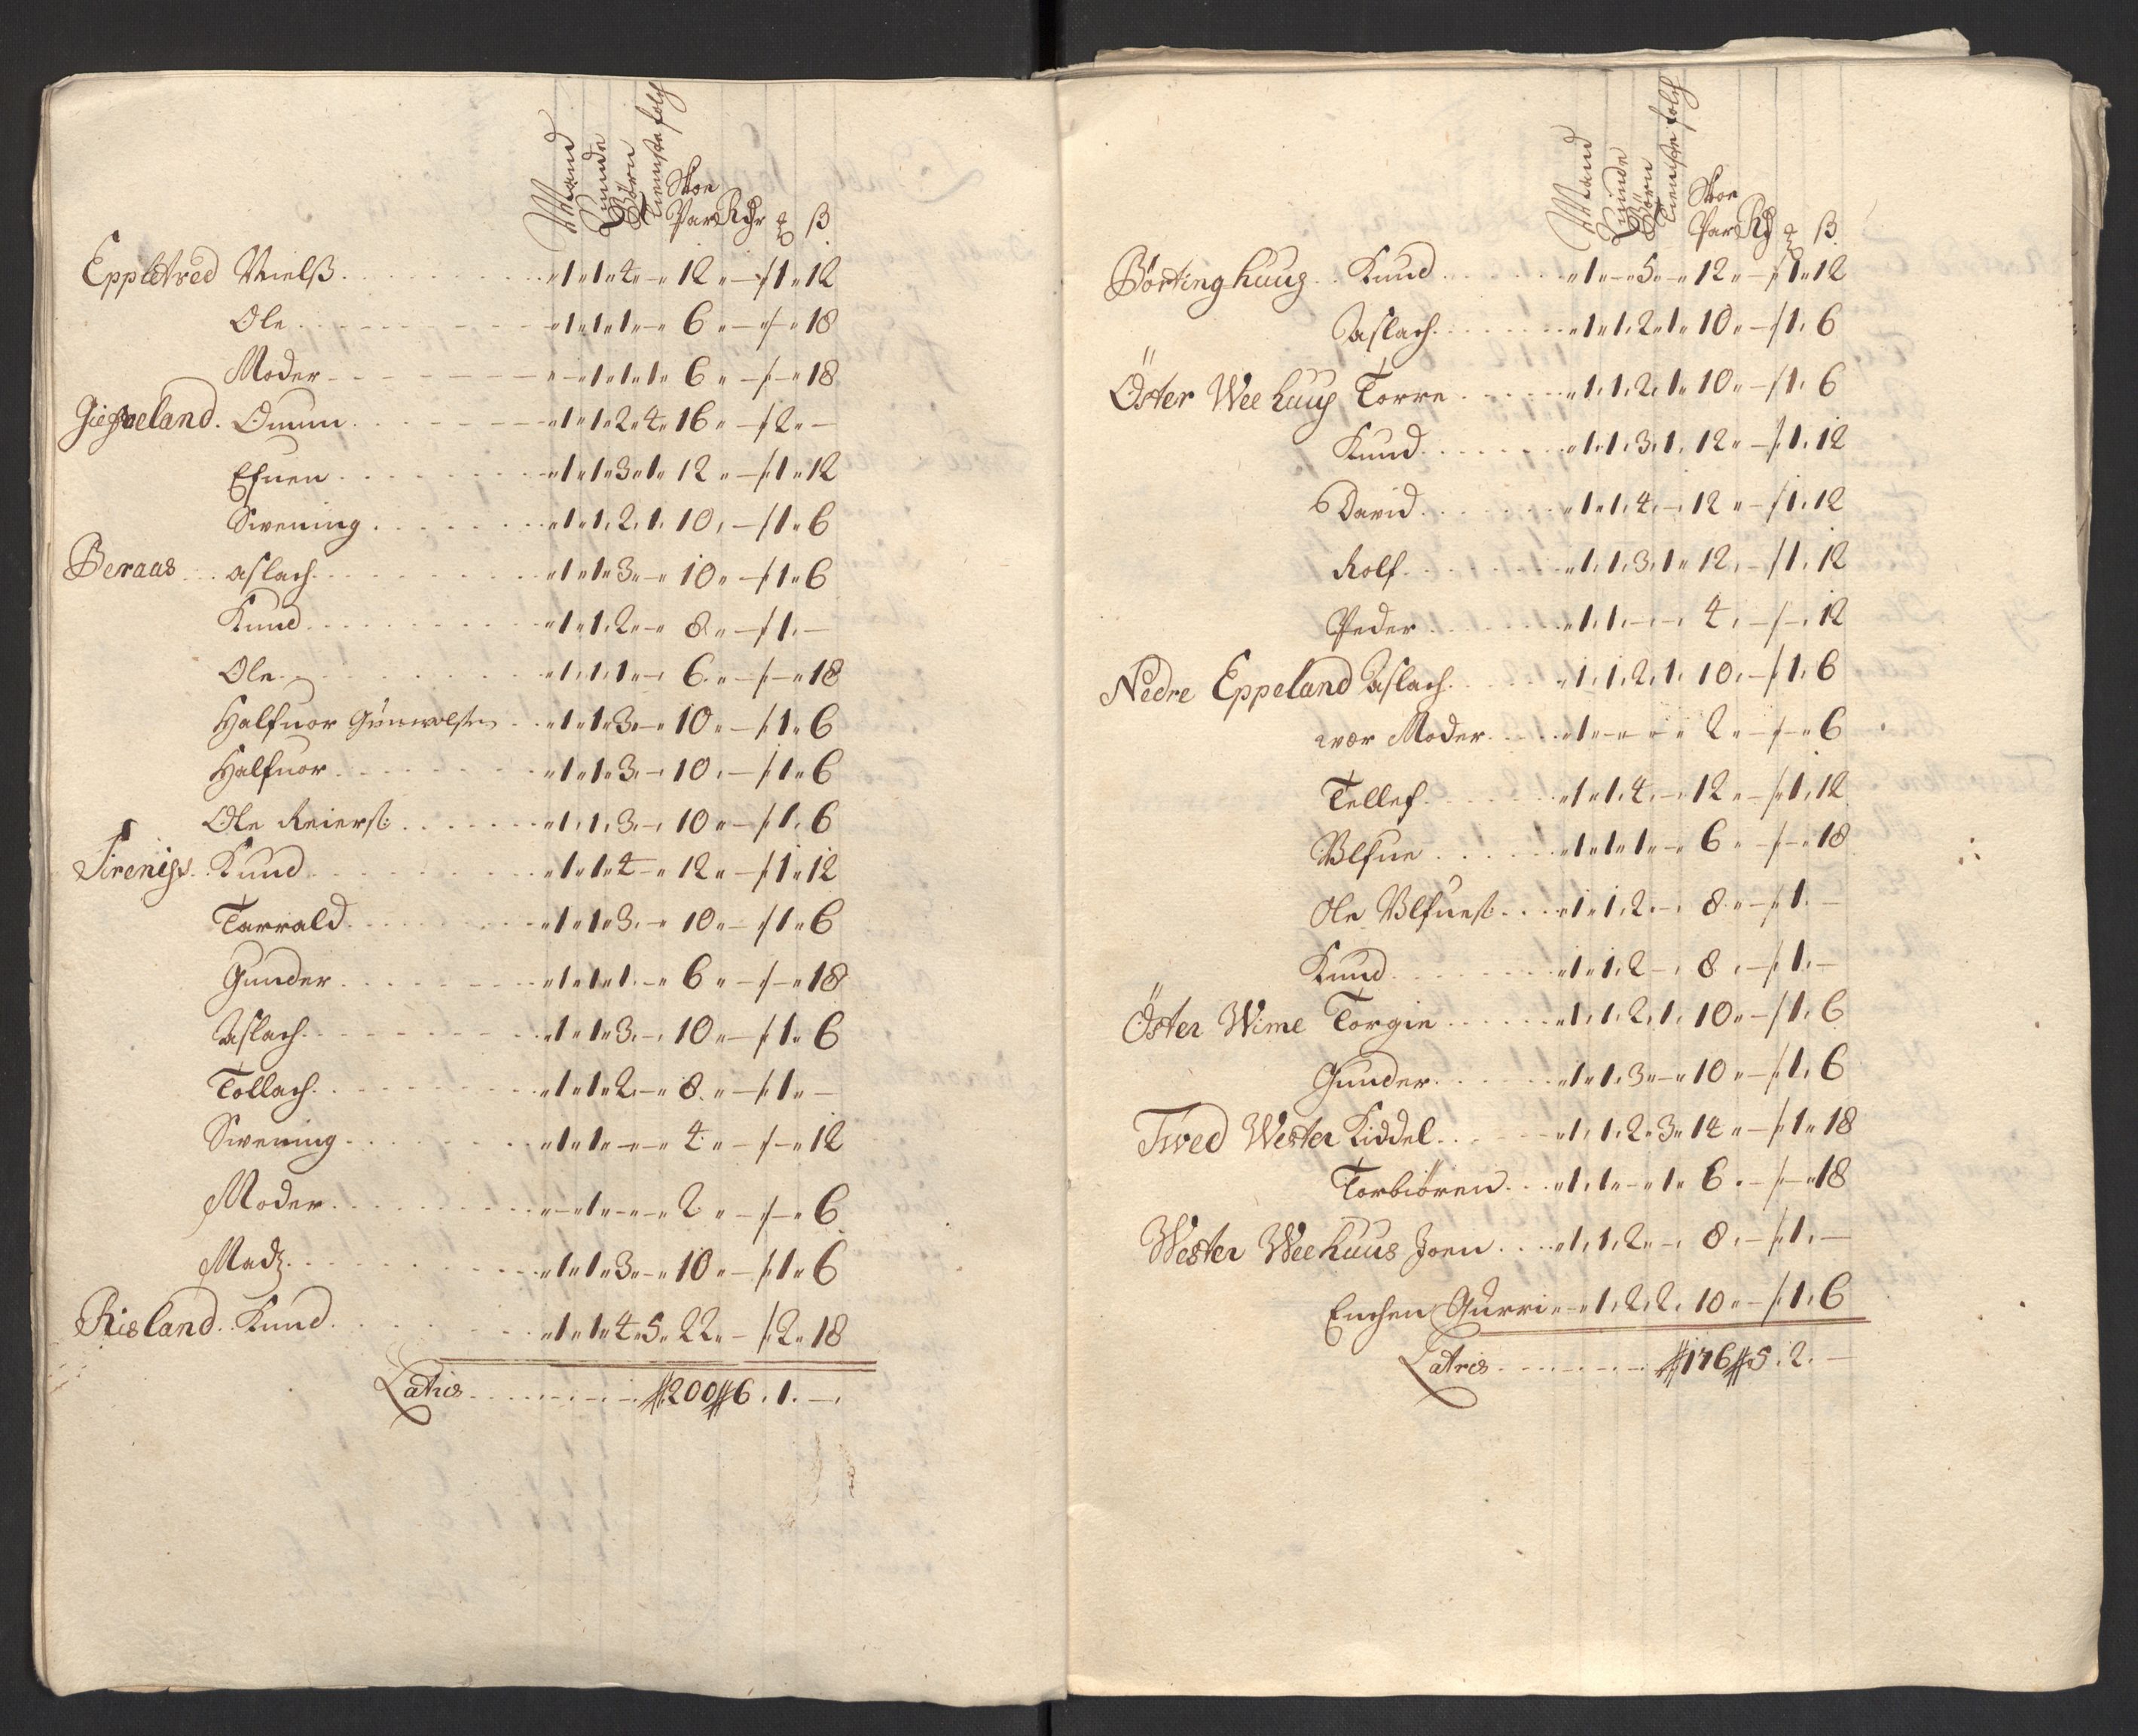 Mand Quinde Börn Tieniste folch Skoe Par Rdr ℔ ß
Eppletved Nielß 1 1 4 - 12 - 1 12
Ole 1 1 1 - 6 - - 18
Moder - 1 1 1 6 - - 18
Omun 1 1 2 4 16 - 2 -
Efuen 1 1 3 1 12 - 1 12
Swening 1 1 2 1 10 - 1 6
Beraas Aslach 1 1 3 - 10 - 1 6
Knud 1 1 2 - 8 - 1 -
Ole 1 1 1 - 6 - - 18
Halfuor Gunwolsen 1 1 3 - 10 - 1 6
Halfuor 1 1 3 - 10 - 1 6
Ole Reierß: 1 1 3 - 10 - 1 6
Knud 1 1 4 - 12 - 1 12
Tarrald 1 1 3 - 10 - 1 6
Gunder 1 1 1 - 6 - - 18
Aslach 1 1 3 - 10 - 1 6
Tollach 1 1 2 - 8 - 1 -
Swening 1 1 - - 4 - - 12
Moder - 1 - - 2 - - 6
Madz 1 1 3 - 10 - 1 6
Risland Knud 1 1 4 5 22 - 2 18
Latris 200 6 1 -
Mand Quinde Börn Tieniste folch Skoe Par Rd ℔ ß
Börtinghuus Knud 1 - 5 - 12 - 1 12
Aslach 1 1 2 1 10 - 1 6
Öster Weehuus Torre 1 1 2 1 10 - 1 6
Knud 1 1 3 1 12 - 1 12
David 1 1 4 - 12 - 1 12
Rolf 1 1 3 1 12 - 1 12
Peder 1 1 - - 4 - - 12
Nedre Eppeland Aslach 1 1 2 1 10 - 1 6
wor Moder 1 - - - 2 - - 6
Tellef 1 1 4 - 12 - 1 12
Ulfue 1 1 1 - 6 - - 18
Ole Ulfueß: 1 1 2 - 8 - 1 -
Knud 1 1 2 - 8 - 1 -
Öster Wime Torgie 1 1 2 1 10 - 1 6
Gunder 1 1 3 - 10 - 1 6
Tved Wester Kiddel 1 1 2 3 14 - 1 18
Torbiören 1 1 - 1 6 - - 18
Wester Weehuus Joen 1 1 2 - 8 - 1 -
Enchen Gurri - 1 2 2 10 - 1 6
Latris 176 5 2 -